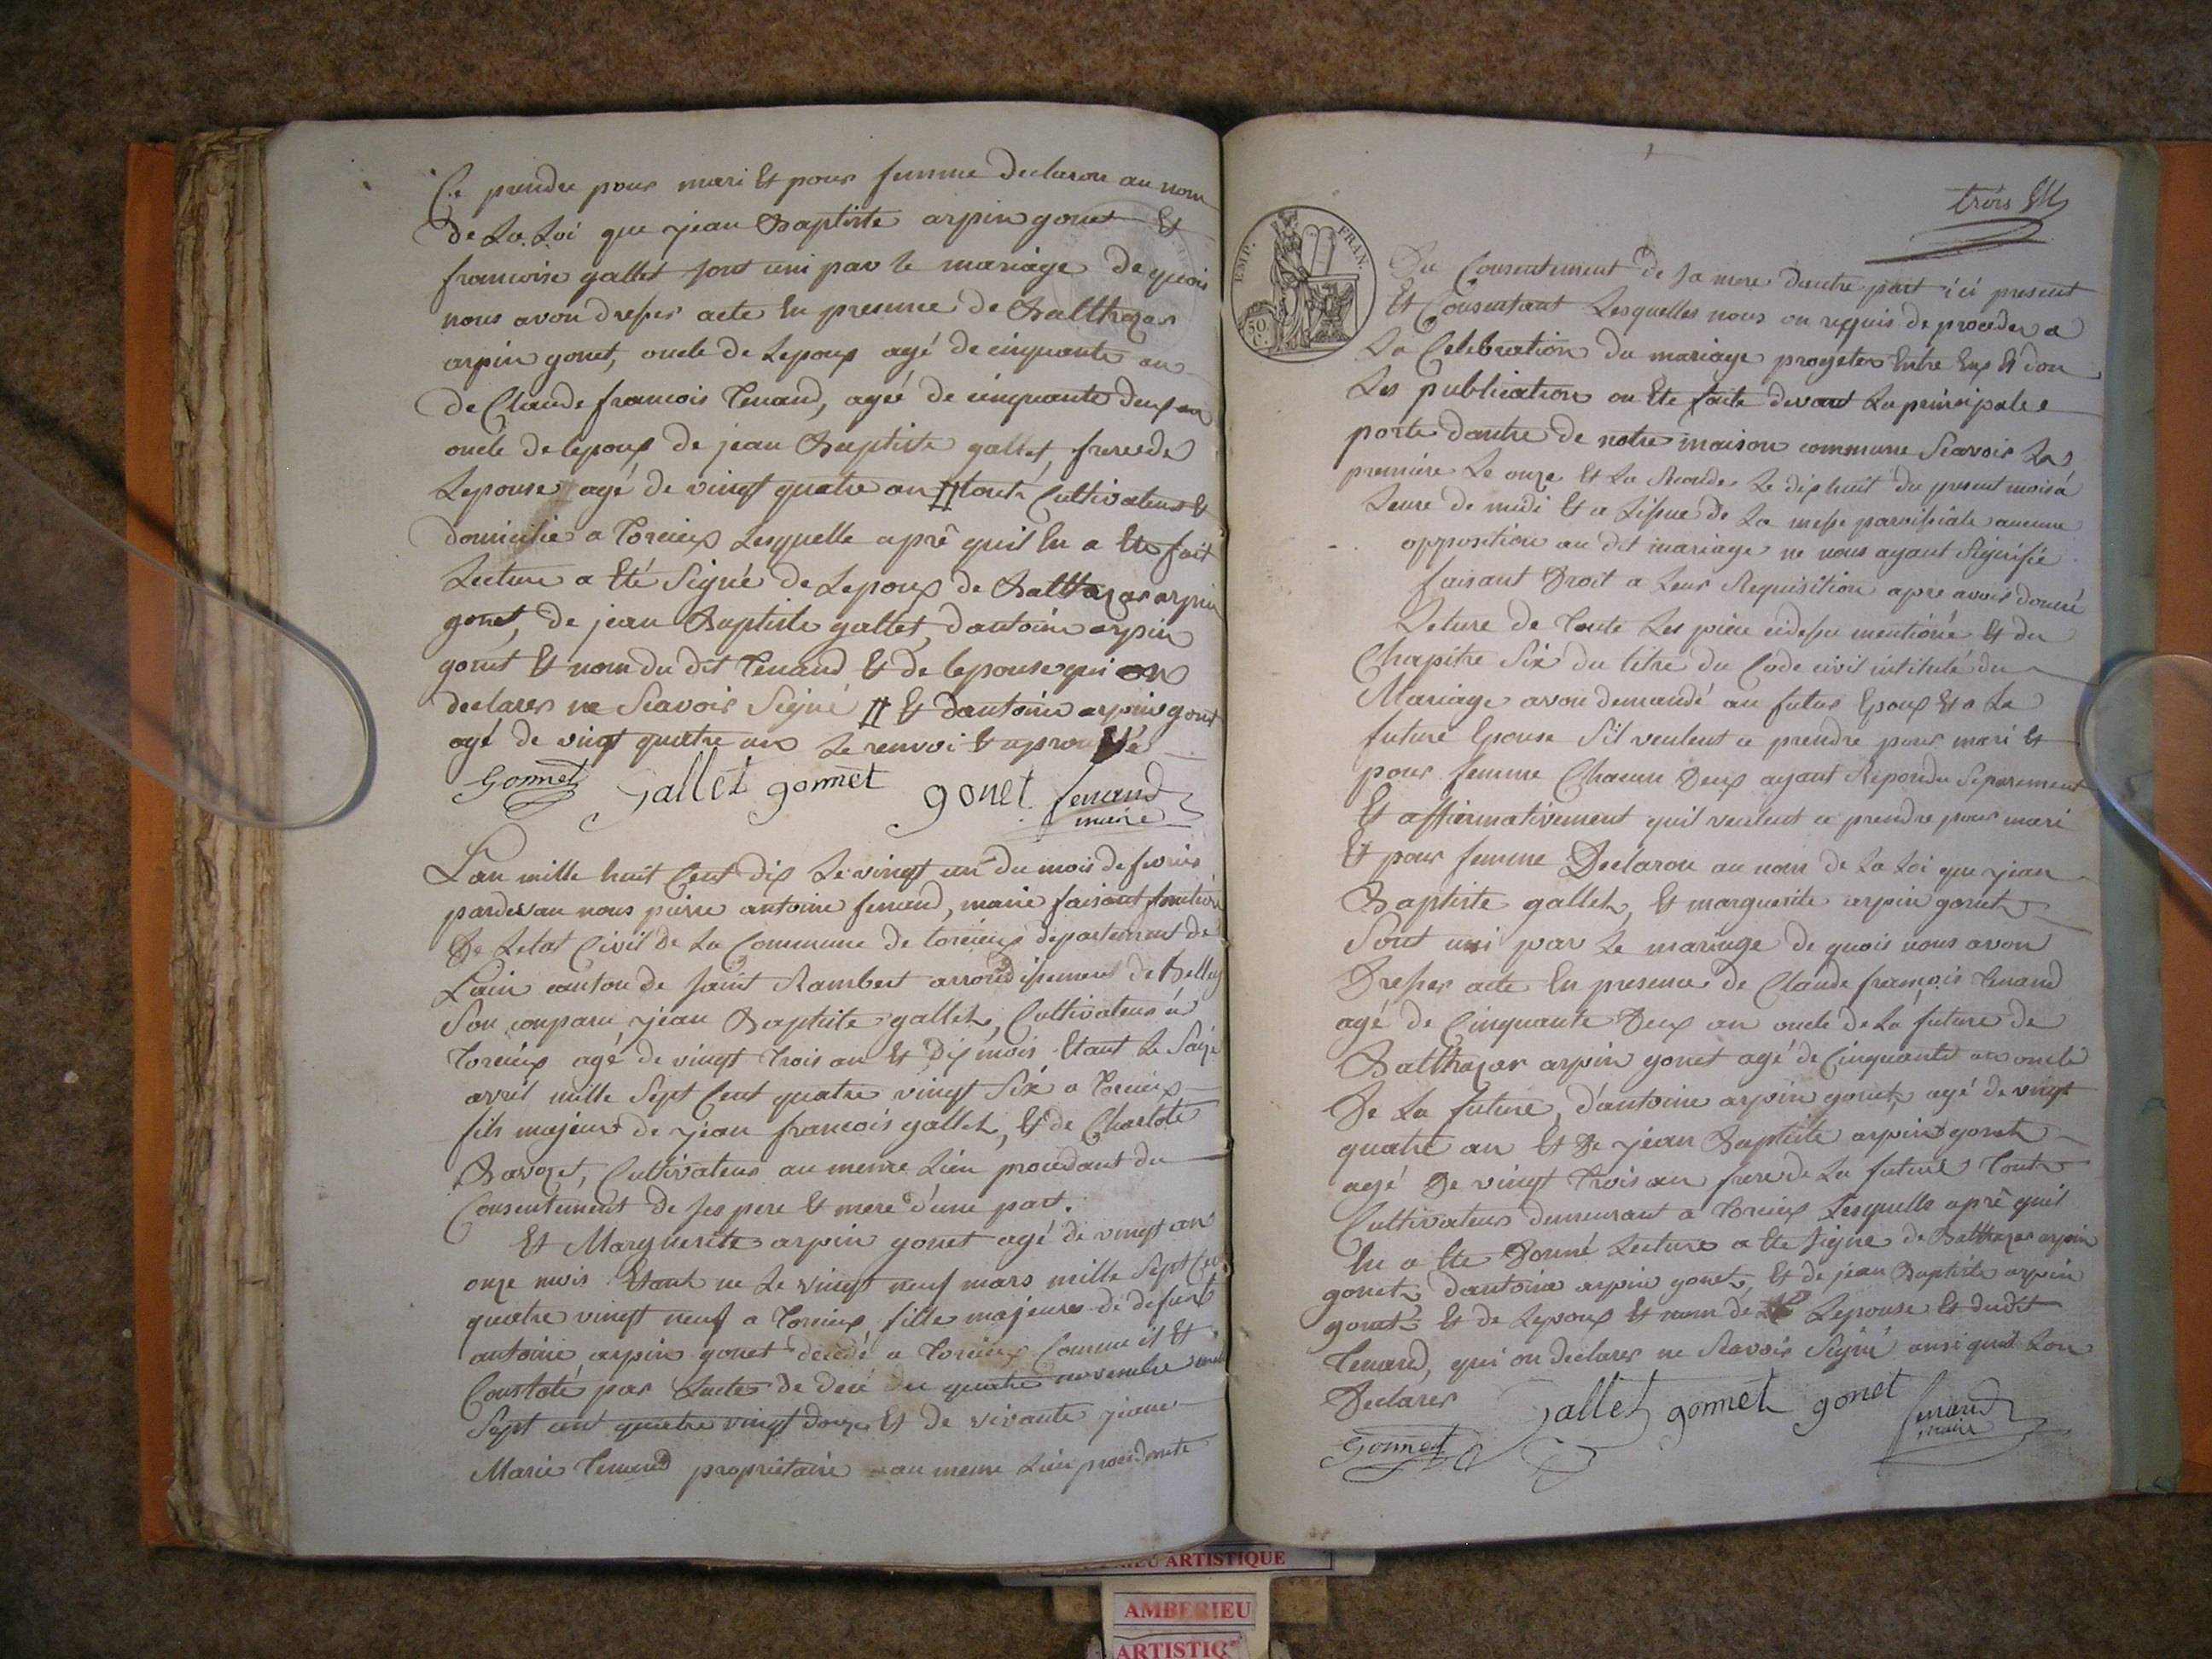 Ce prendre pour mari Et pour femme declaron au nom
de La Loi que jean Baptiste arpin gonet Et
francoise gallet sont uni par le mariage de quoi
nous avon dresser acte En presence de Balthazar
arpin gonet, oncle de Lepoux agé de cinquante an
de Claude francois Tenand, agéé de cinquante deux an
oncle de lepoux de jean Baptiste gallet, frere de
Lepouse agé de vingt quatre an # toute Cultivateur Et
domicilie a Torcieux Lesquelle aprê quil En a Ete fait
Lecture a Eté Signé de Lepoux de Balthazar arpin
gonet, de jean Baptiste gallet, dantoine arpin
gonet Et nom du dit Tenand Et de lepouse qui on
declarer ne Scavoir Signé # Et dantoine arpin gonet
agé de vingt quatre an Le renvoi Et aprouvé
Gonnet Gallet gonnet gonet ferrand
maire
Lan mille huit Cent dix Le vingt un du mois de fevrier
pardevan nous pierre antoine ferrand, maire faisant fontion
De Letat Civil de La Commune de torcieux departement de
Lain canton de Saint Rambert arrondissement de Belley
Son comparu jean Baptiste gallet, Cultivateur à
Torcieux agé de vingt Trois an Et Dix mois Etant Le Saize
avril mille Sept Cent quatre vingt Six a Torcieux
fils majeur de jean francois gallet, Et de Charlote
Bavozet, Cultivateur au meme Lieu procedant du
Consentement de ses pere Et mere d'une part.
Et Marguerite arpin gonet agé de vingt an
onze mois Etant ne Le vingt neuf mars mille Sept Cent
quatre vingt neuf a Torcieux fille majeure de defunt
antoine arpin gonet decedé a Torcieux Comme il Et
Constaté par Lacte de decé du quatre novembre mil
Sept cent quatre vingt douze Et de vivante jeane
Marie Tenand propriétaire au meme Lieu procedante
trois
EMP. FRAN.
50 C.
Du Consentement de sa mere dautre part ici present
Et Consentant Lesquelles nous on requis de proceder a
La Celebration du mariage progeter Entre Eux Et don
Les publication on Ete faite devant La principale
porte dantre de notre maison commune Scavoir La
premiere Le onze Et La Seconde Le dix huit du present mois à
Leure de midi Et a Lissue de La messe paroissiale aucune
opposition au dit mariage ne nous ayant Signifié
faisant Droit a Leur Requisition apre avoir donné
Leture de Toute Les piece cidessu mentionée Et du
Chapitre Six du titre du Code civil intitulé du
Mariage avon demandé au futur Epoux Et a La
future Epouse Sil veulent ce prendre pour mari Et
pour femme Chacun Deux ayant Repondu Separement
Et affirmativement quil veulent ce prendre pour mari
Et pour femme Declaron au nom de La Loi que jean
Baptiste gallet, Et marguerite arpin gonet
Sont uni par Le mariage de quoi nous avon
Dresser acte En presence de Claude françois Tenand
agé de Cinquante Deux an oncle de La future de
Balthazar arpin gonet agé de Cinquante an oncle
De La future, d'antoine arpin gonet, agé de vingt
quatre an Et De jean Baptiste arpin gonet
agé De vingt Trois an frere de La future Toute
Cultivateur demeurant a Torcieux Lesquelle aprê quil
En a Ete Donné Lecture a Ete Signe de Balthazar arpin
gonet dantoine arpin gonet, Et de jean Baptiste arpin
gonet Et de Lepoux Et nom de Lepouse Et dudit
Tenand, qui on declarer ne Scavoir Signé ansi quil Lon
Declarer
Gallet gonnet gonet ferrand
maire
Gonnet
ARTISTIQUE
AMBERIEU
ARTISTIQ